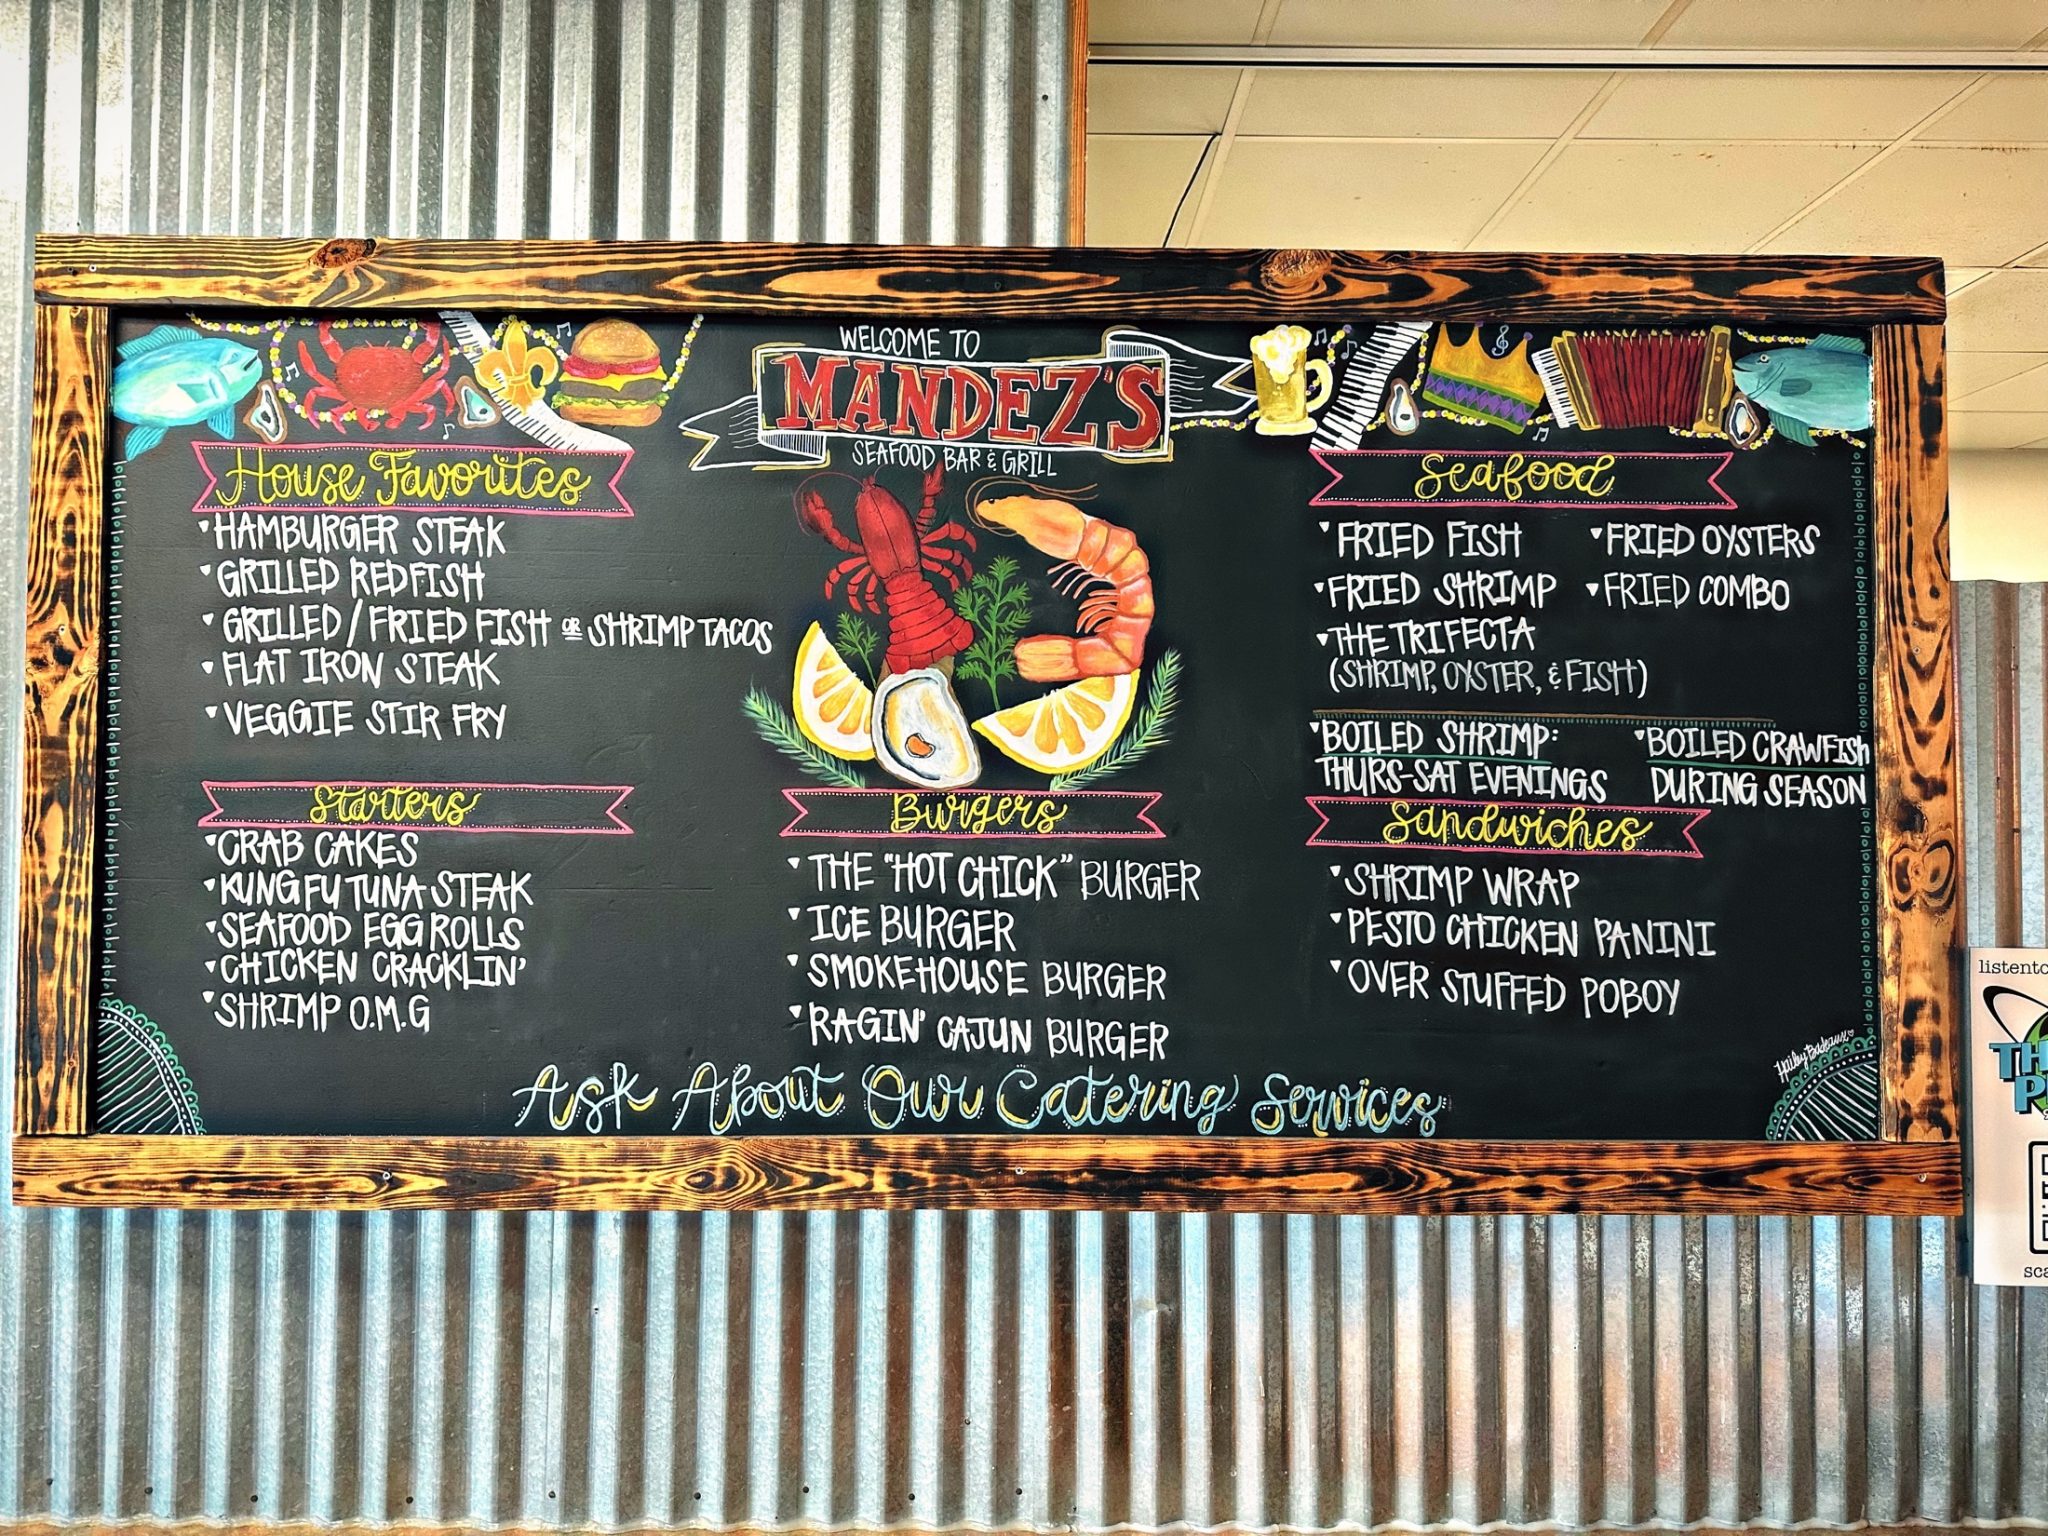 WELCOME TO
MANDEZ'S
SEAFOOD BAR & GRILL
House Favorites
HAMBURGER STEAK
GRILLED REDFISH
GRILLED / FRIED FISH OR SHRIMP TACOS
FLAT IRON STEAK
VEGGIE STIR FRY
Starters
CRAB CAKES
KUNG FU TUNA STEAK
SEAFOOD EGG ROLLS
CHICKEN CRACKLIN'
SHRIMP O.M.G
Burgers
THE "HOT CHICK" BURGER
ICE BURGER
SMOKEHOUSE BURGER
RAGIN' CAJUN BURGER
Seafood
FRIED FISH
FRIED OYSTERS
FRIED SHRIMP
FRIED COMBO
THE TRIFECTA
(SHRIMP, OYSTER, & FISH)
BOILED SHRIMP:
THURS-SAT EVENINGS
BOILED CRAWFISH
DURING SEASON
Sandwiches
SHRIMP WRAP
PESTO CHICKEN PANINI
OVER STUFFED POBOY
Ask About Our Catering Services
Hailey Badeaux